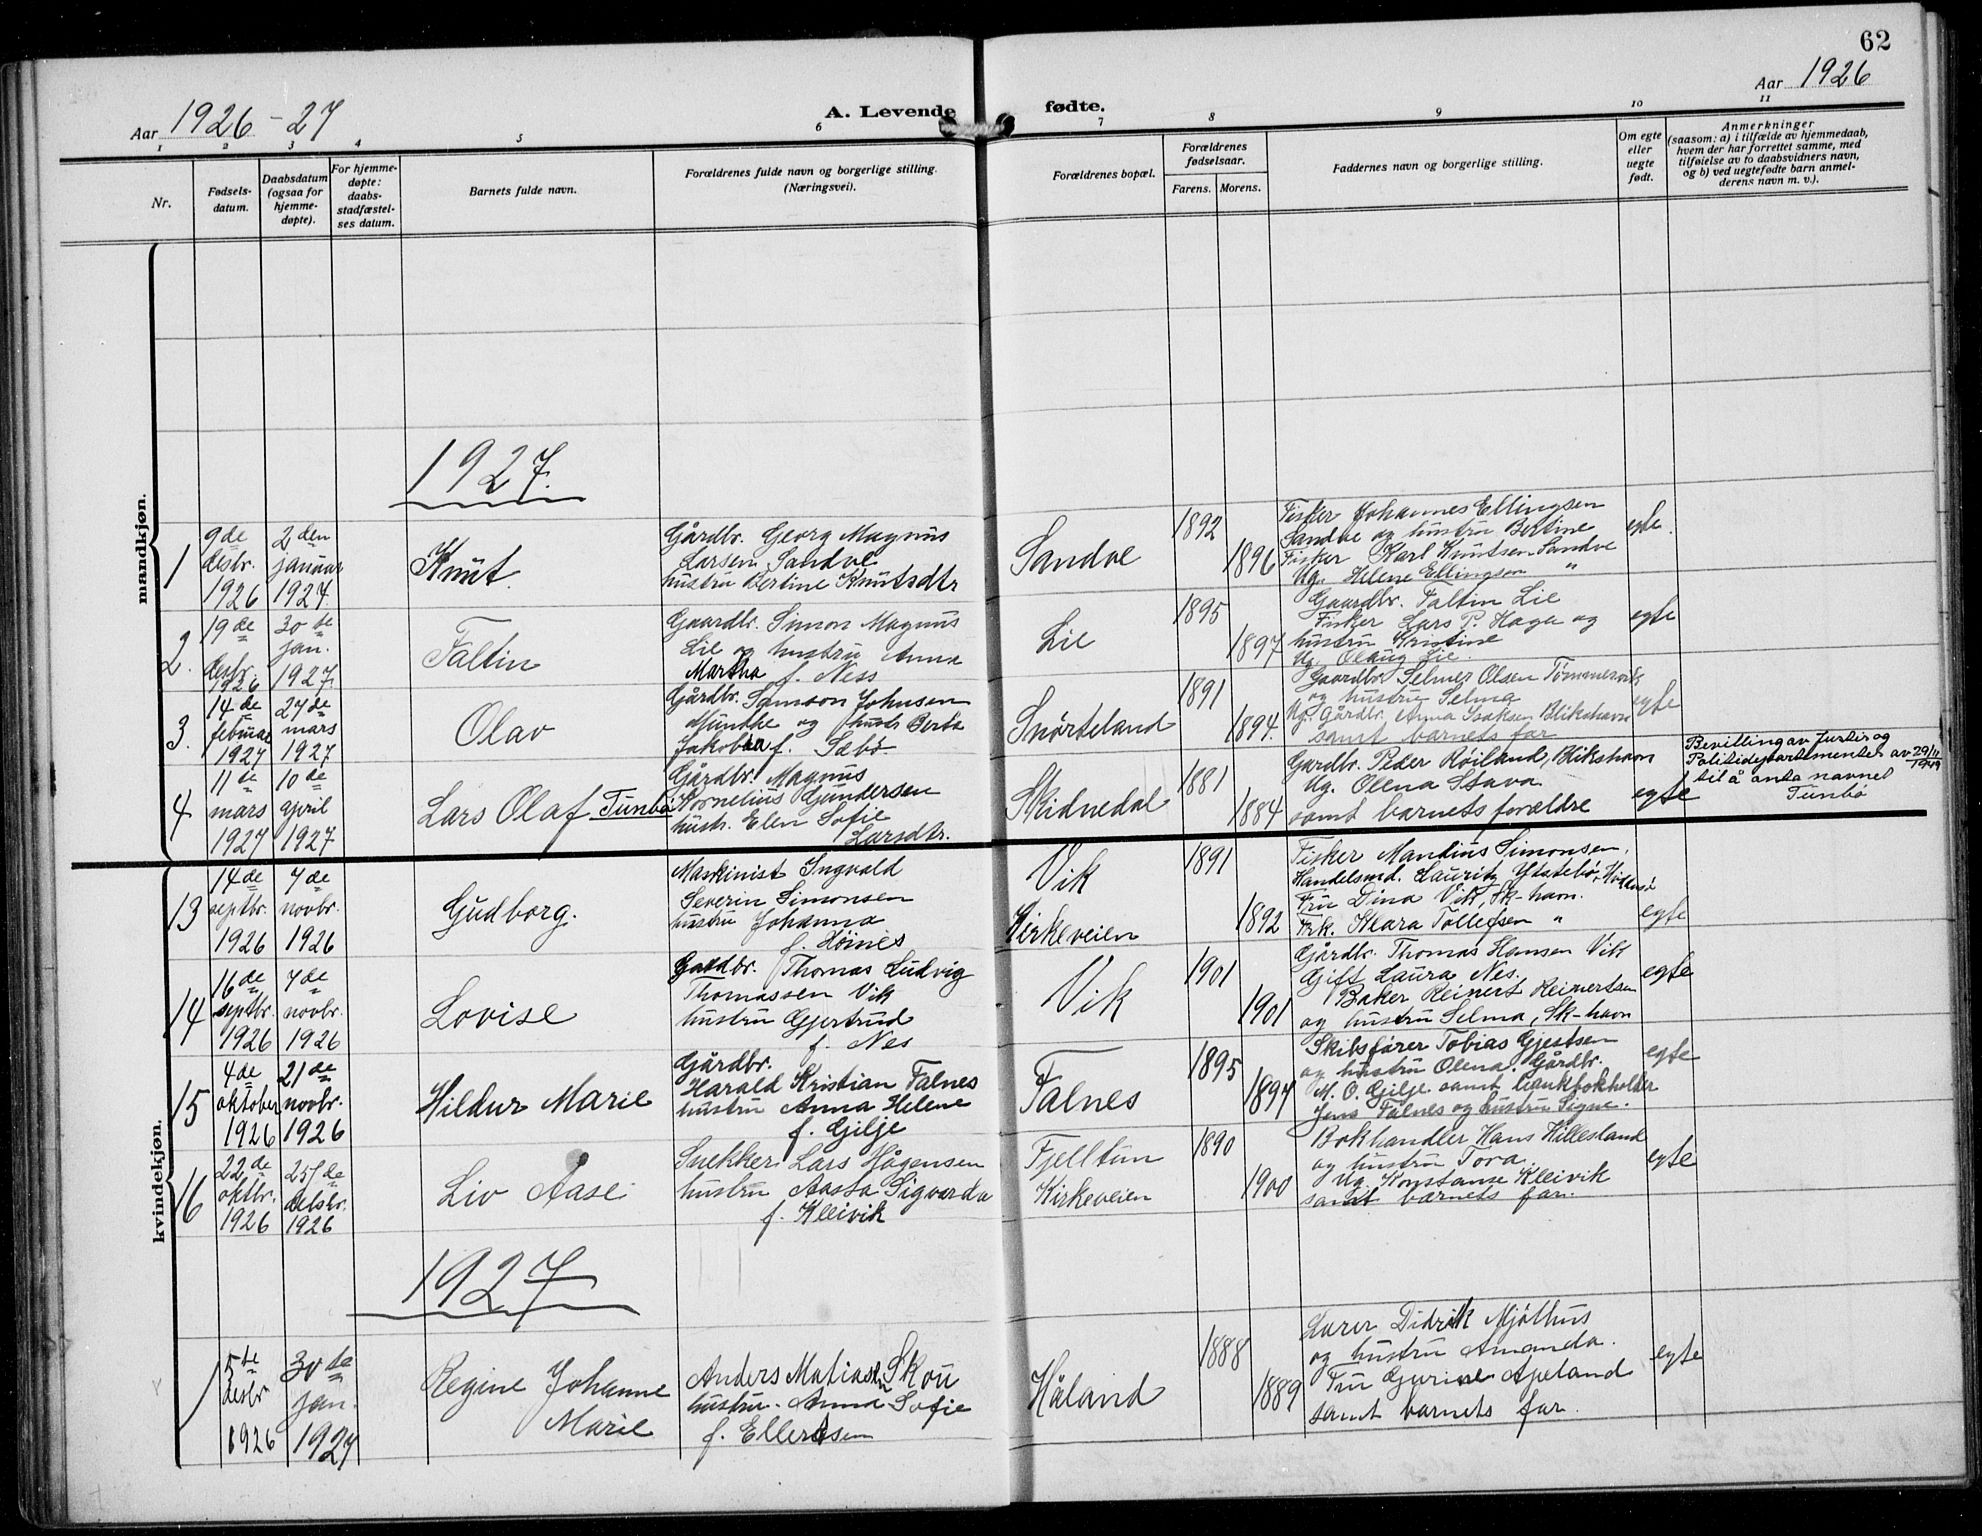 62
Aar 1926-27
A. Levende
fødte.
Aar 1926
1 2 3 4 5 6 7 8 9 10 11
Nr.
Fødsels-
datum.
Daabsdatum
(ogsaa for
hjemme-
døpte).
For hjemme-
døpte:
daabs-
stadfæstel-
ses datum.
Barnets fulde navn.
Forældrenes fulde navn og borgerlige stilling.
(Næringsvei).
Forældrenes bopæl.
Forældrenes
fødselsaar.
Farens. Morens.
Faddernes navn og borgerlige stilling.
Om egte
eller
uegte
født.
Anmerkninger
(saasom: a) i tilfælde av hjemmedaab,
hvem der har forrettet samme, med
tilføielse av to daabsvidners navn,
og b) ved uegtefødte barn anmel-
derens navn m. v.).
mandkjøn.
1927.
1
9de
desbr.
1926
2den
januar
1927.
Knut.
Gårdbr. Georg Magnus
Larsen Sandve
hustru Bertine Knutsdtr
Sandve
1892
1896
Fisker Johannes Ellingsen
Sandve og hustru Bertine
Fisker Karl Knutsen Sandve
Ug. Helene Ellingsen "
egte.
2.
19de
desbr.
1926
30te
jan.
1927.
Faltin
Gaardbr. Simon Magnus
Lie og hustru Anna
Martha f. Ness
Lie
1895
1897
Gaardbr. Faltin Lie
Fisker Lars P. Haga og
hustru Kristine
Ug. Olaug Lie.
egte
3.
14de
februar
1927
27de
mars
1927
Olav
Gårdbr. Samson Johnsen
Munthe og hustr. Berta
Jakobea f. Sæbø
Snørteland
1891
1894.
Gaardbr. Selmer Olsen Tømmervik,
og hustru Selma
Ug. Gårdbr. Anna Isaksen Blikshavn
samt barnets far
egte
4
11te
mars
1927
10de
april
1927
Lars Olaf Tunbø
Gårdbr. Magnus
Kornelius Gundersen
hustr. Elen Sofie
Larsdtr.
Skidnedal
1881
1884
Gardbr. Peder Røiland, Blikshavn
Ug. Olena Stava
samt barnets forældre
egte
Bevilling av Justis og
Politidepartementet av 29/11 1949
til å anta navnet
Tunbø
kvindekjøn.
13
14de
septbr.
1926
7de
novbr.
1926
Gudborg.
Maskinist Ingvald
Severin Simonsen
hustru Johanna
f. Høines
Vik
Kirkeveien
1891
1892
Fisker Mandius Simonsen,
Handelsmd. Lauritz Ystebø,
Fru Dina Vik, Sk-havn.
Frk. Klara Tollefsen "
egte
14
16de
septbr.
1926
7de
novbr.
1926
Lovise
Gardbr. Thomas Ludvig
Thomassen Vik
hustru Gjertrud
f. Nes
Vik
1901
1901
Gårdbr. Thomas Hansen Vik
Gift Laura Nes.
Baker Reinert Reinertsen
og hustru Selma, Sk-havn
egte
15
4de
oktober
1926
21de
novbr.
1926
Hildur Marie
Gårdbr.
Harald Kristian Falnes
hustru Anna Helene
f. Gilje
Falnes
1895
1897
Skibsfører Tobias Gjestsen
og hustru Olena. Gårdbr.
M. O. Gilje samt bankbokholder
Jens Falnes og hustru Signe.
egte
16
22de
oktbr.
1926
25de
desbr.
1926
Liv Aase
Snekker Lars Hågensen
hustru Aasta Sigvarda
f. Kleivik
Fjelltun
Kirkeveien
1890
1900
Bokhandler Hans Hillesland
og hustru Tora.
Ug. Konstanse Kleivik
samt barnets far.
egte
1927
1
5te
desbr
1926
30te
jan.
1927
Regine Johanne
Marie
Anders Matiassen Skou
hustru Anna Sofie
f. Ellertsen
Håland
1888
1889
Lærer Didrik Mjølhus
og hustru Amanda.
Fru Gurine Apeland
samt barnets far.
egte